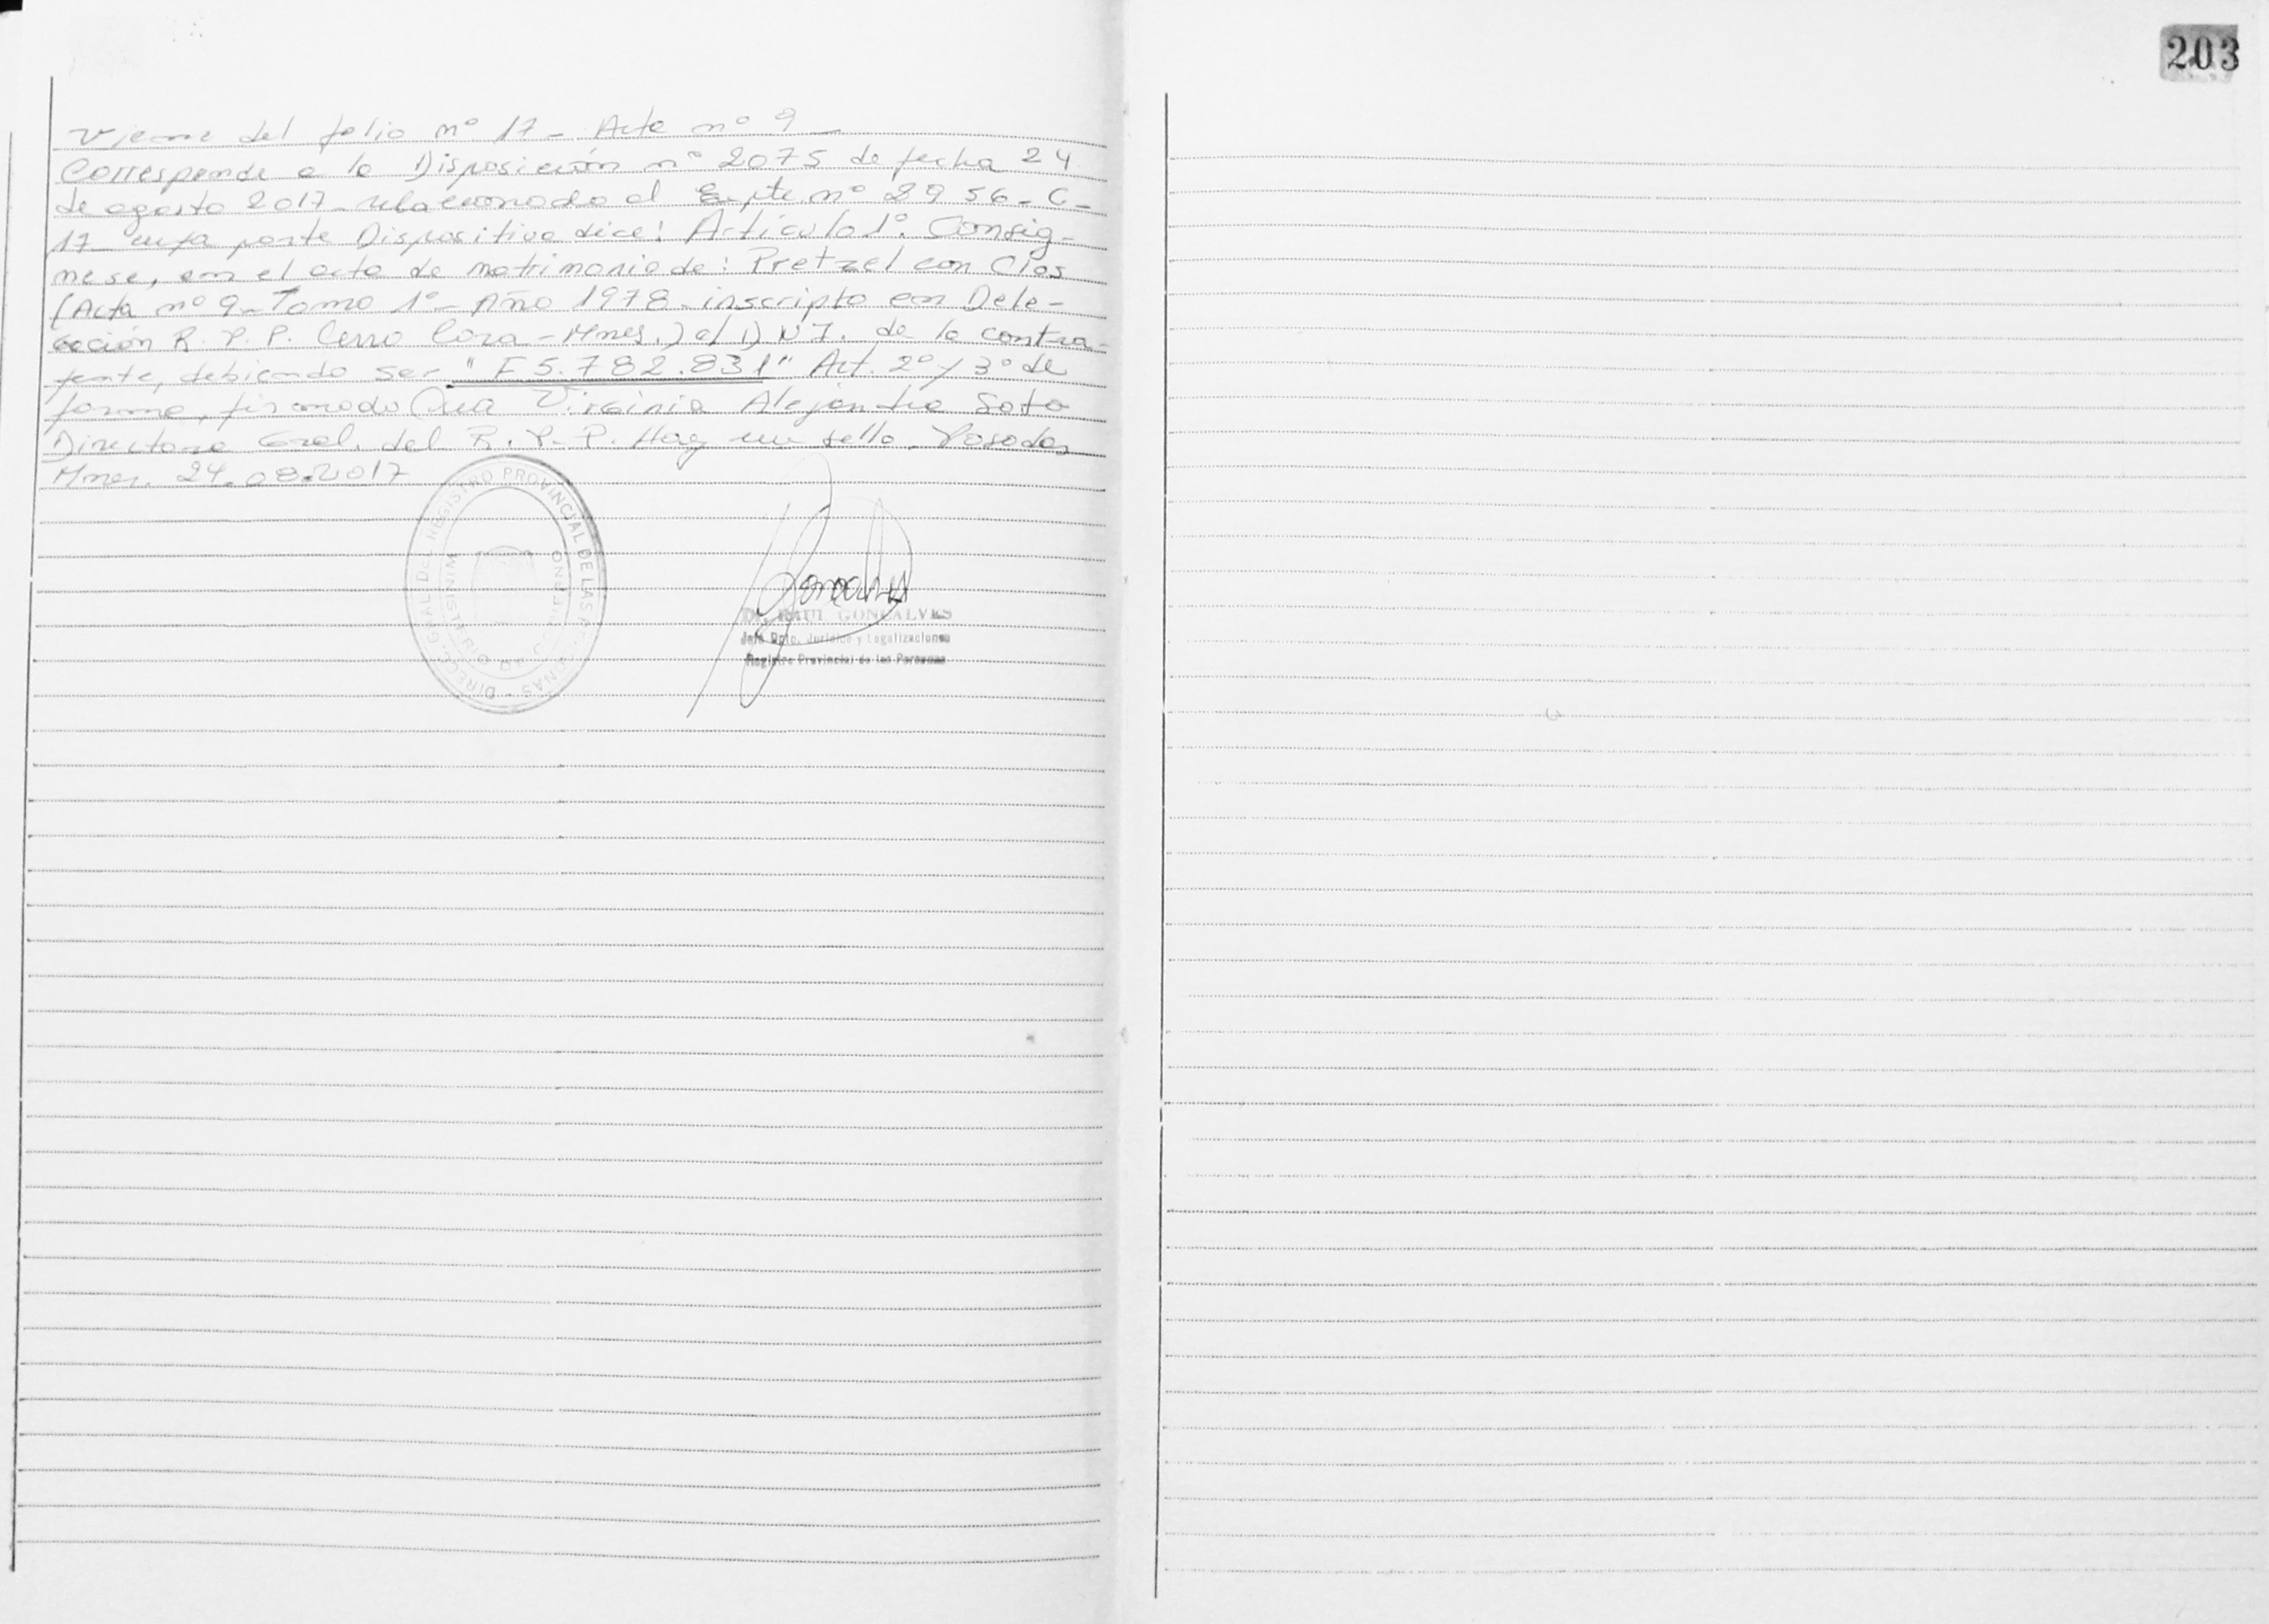 203
Viene del folio nº 17 - Acta nº 9 -
Corresponde a la Disposición nº 2075 de fecha 24
de agosto 2017 - relacionado al Expte nº 2956 - C -
17 - cuya parte Dispositiva dice: Artículo 1º: Consig-
nese, en el acta de matrimonio de: Pretzel con Clos
(Acta nº 9 - Tomo 1º - Año 1978 - inscripto en Dele-
gación R. P. P. Cerro Cora - Mnes.) el D N I. de la contra-
yente, debiendo ser "F 5.782.831" Art. 2º y 3º de
forma, firmado Virginia Alejandra Soto
Directora Gral. del R. P. P. Hay un sello. Posadas
Mnes. 24.08.2017
DIRECC. GRAL DEL REGISTRO PROVINCIAL DE LAS PERSONAS -
MINISTERIO DE GOBIERNO
Dr. RAUL GONCALVES
Jefe Dpto. Jurídico y Legalizaciones
Registro Provincial de las Personas